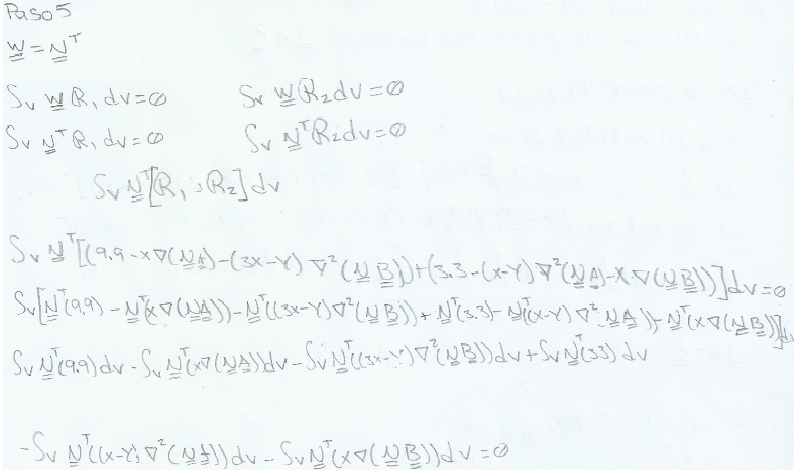 Paso 5
W = N^T
S_V W R_1 dv = 0 S_V W R_2 dv = 0
S_V N^T R_1 dv = 0 S_V N^T R_2 dv = 0
S_V N^T [R_1 , R_2] dv
S_V N^T [(9.9 - x∇(NA) - (3x-Y) ∇²(NB)) + (3.3 - (x-Y) ∇²(NA) - x∇(NB))] dv = 0
S_V [N^T(9.9) - N^T(x∇(NA)) - N^T((3x-Y)∇²(NB)) + N^T(3.3) - N^T(x-Y) ∇² NA)) - N^T(x∇(NB))] dv
S_V N^T(9.9) dv - S_V N^T(x∇(NA)) dv - S_V N^T((3x-Y)∇²(NB)) dv + S_V N^T(33) dv
- S_V N^T((x-Y) ∇²(NA)) dv - S_V N^T(x∇(NB)) dv = 0